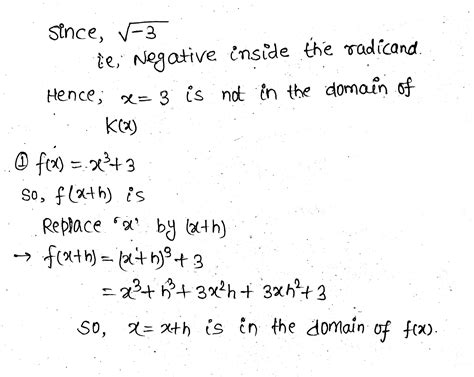 Since, √-3
ie, Negative inside the radicand.
Hence, x = 3 is not in the domain of
K(x)
① f(x) = x³+3
So, f(x+h) is
Replace 'x' by (x+h)
→ f(x+h) = (x+h)³ + 3
= x³ + h³ + 3x²h + 3xh² + 3
So, x = x+h is in the domain of f(x).